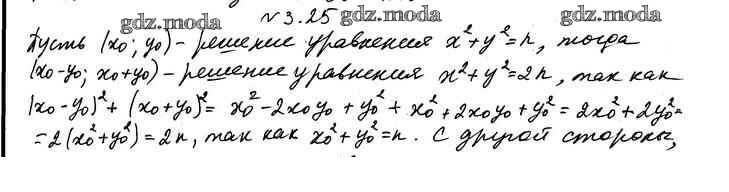 N 3.25 gdz.moda
gdz.moda gdz.moda
Пусть (x₀; y₀) - решение уравнения x² + y² = n, тогда
(x₀-y₀; x₀+y₀) - решение уравнения x² + y² = 2n, так как
(x₀-y₀)² + (x₀+y₀)² = x₀² - 2x₀y₀ + y₀² + x₀² + 2x₀y₀ + y₀² = 2x₀² + 2y₀² =
= 2(x₀² + y₀²) = 2n, так как x₀² + y₀² = n. С другой стороны,